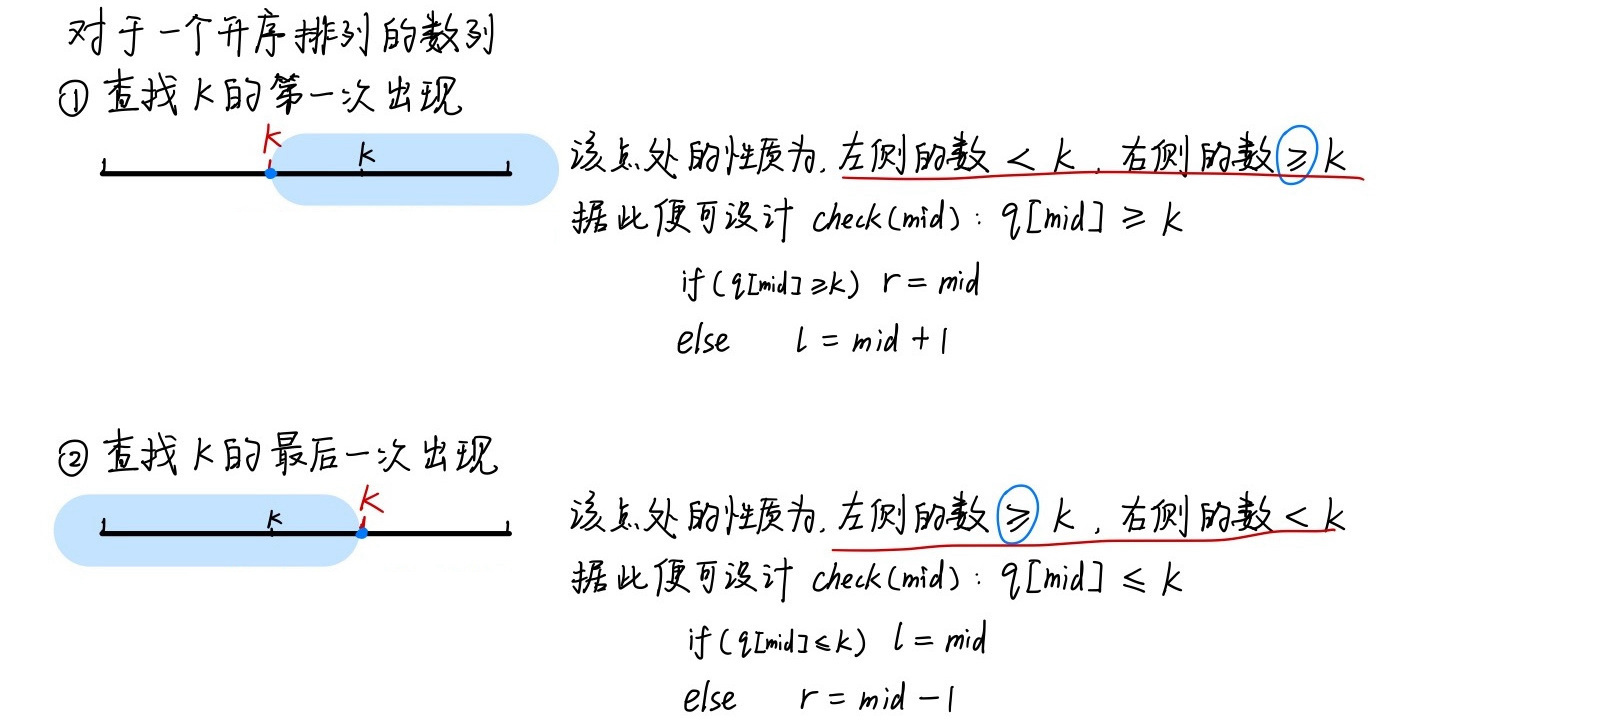 对于一个升序排列的数列
① 查找 k 的第一次出现
k
k
该点处的性质为, 左侧的数 < k , 右侧的数 ≥ k
据此便可设计 check(mid) : q[mid] ≥ k
if (q[mid] ≥ k) r = mid
else l = mid + 1
② 查找 k 的最后一次出现
k
k
该点处的性质为, 左侧的数 ≥ k , 右侧的数 < k
据此便可设计 check(mid) : q[mid] ≤ k
if (q[mid] ≤ k) l = mid
else r = mid - 1